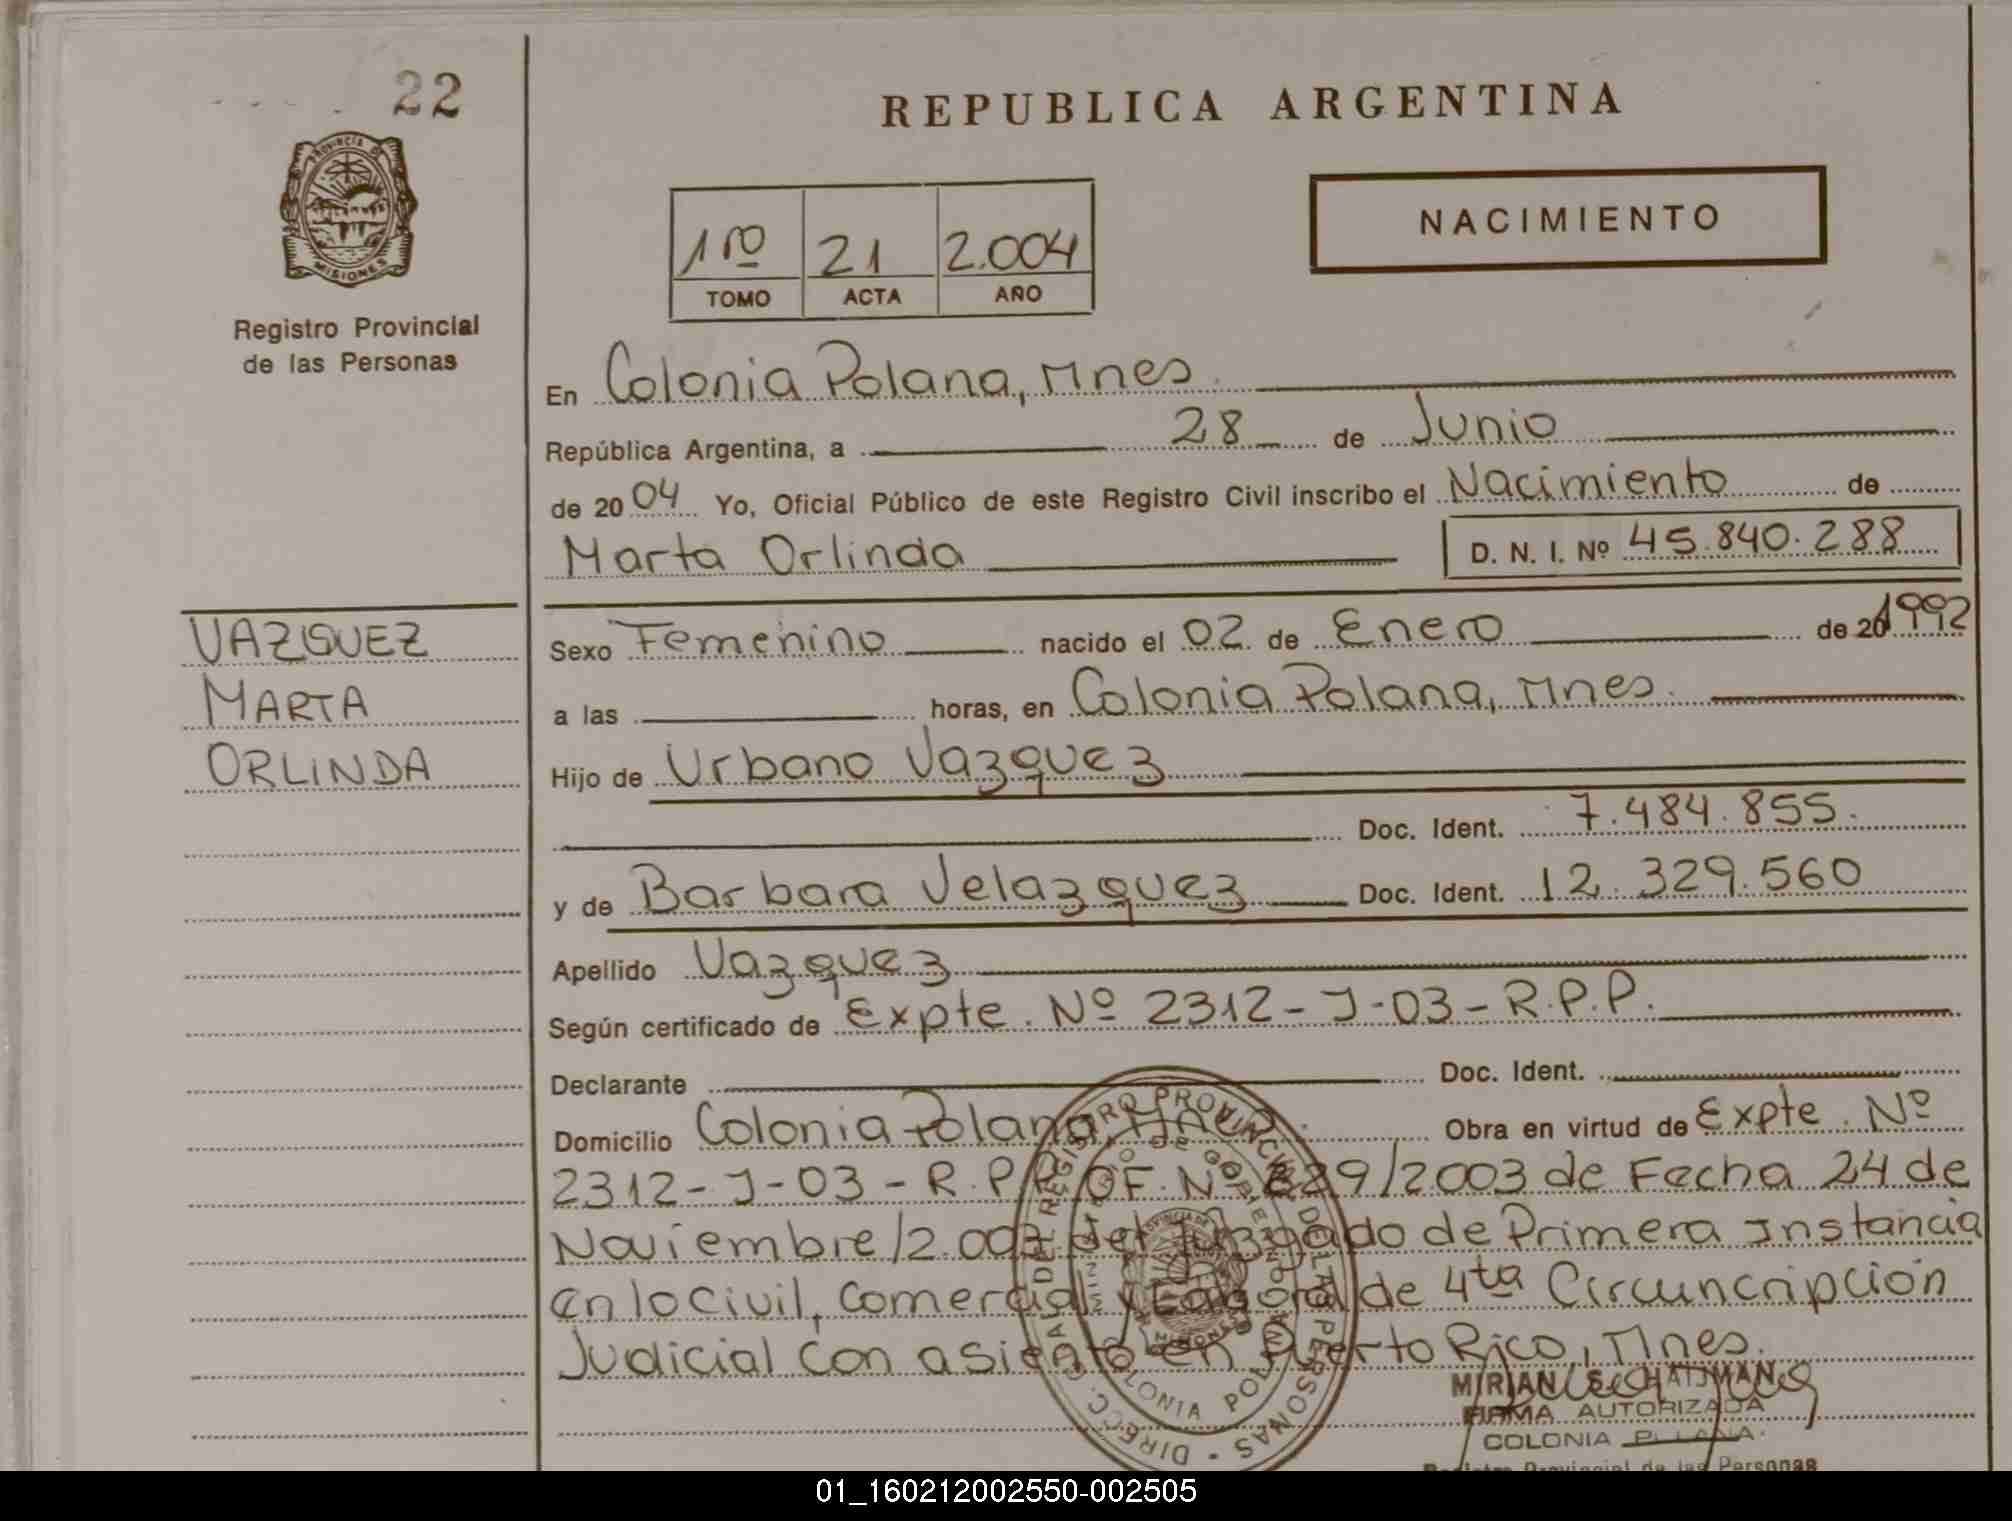 22
REPUBLICA ARGENTINA
PROVINCIA DE
MISIONES
NACIMIENTO
1ro 21 2.004
TOMO ACTA AÑO
Registro Provincial
de las Personas
En Colonia Polana, Mnes.
República Argentina, a 28 de Junio
de 2004 Yo, Oficial Público de este Registro Civil inscribo el Nacimiento de
Marta Orlinda D. N. I. Nº 45.840.288
VAZQUEZ
MARTA
ORLINDA
Sexo Femenino nacido el 02 de Enero de 20 1992
a las horas, en Colonia Polana, Mnes.
Hijo de Urbano Vazquez
Doc. Ident. 7.484.855.
y de Barbara Velazquez Doc. Ident. 12.329.560
Apellido Vazquez
Según certificado de Expte. Nº 2312-J-03-R.P.P.
Declarante Doc. Ident.
Domicilio Colonia Polana, Mnes. Obra en virtud de Expte. Nº
2312-J-03-R.P.P. OF. Nº 29/2003 de Fecha 24 de
Noviembre/2.003 del Juzgado de Primera Instancia
en lo Civil, Comercial y Laboral de 4ta Circuncripción
Judicial con asiento en Puerto Rico, Mnes.
MIRIAN S. CHATJMAN
FIRMA AUTORIZADA
COLONIA POLANA
Registro Provincial de las Personas
01_160212002550-002505